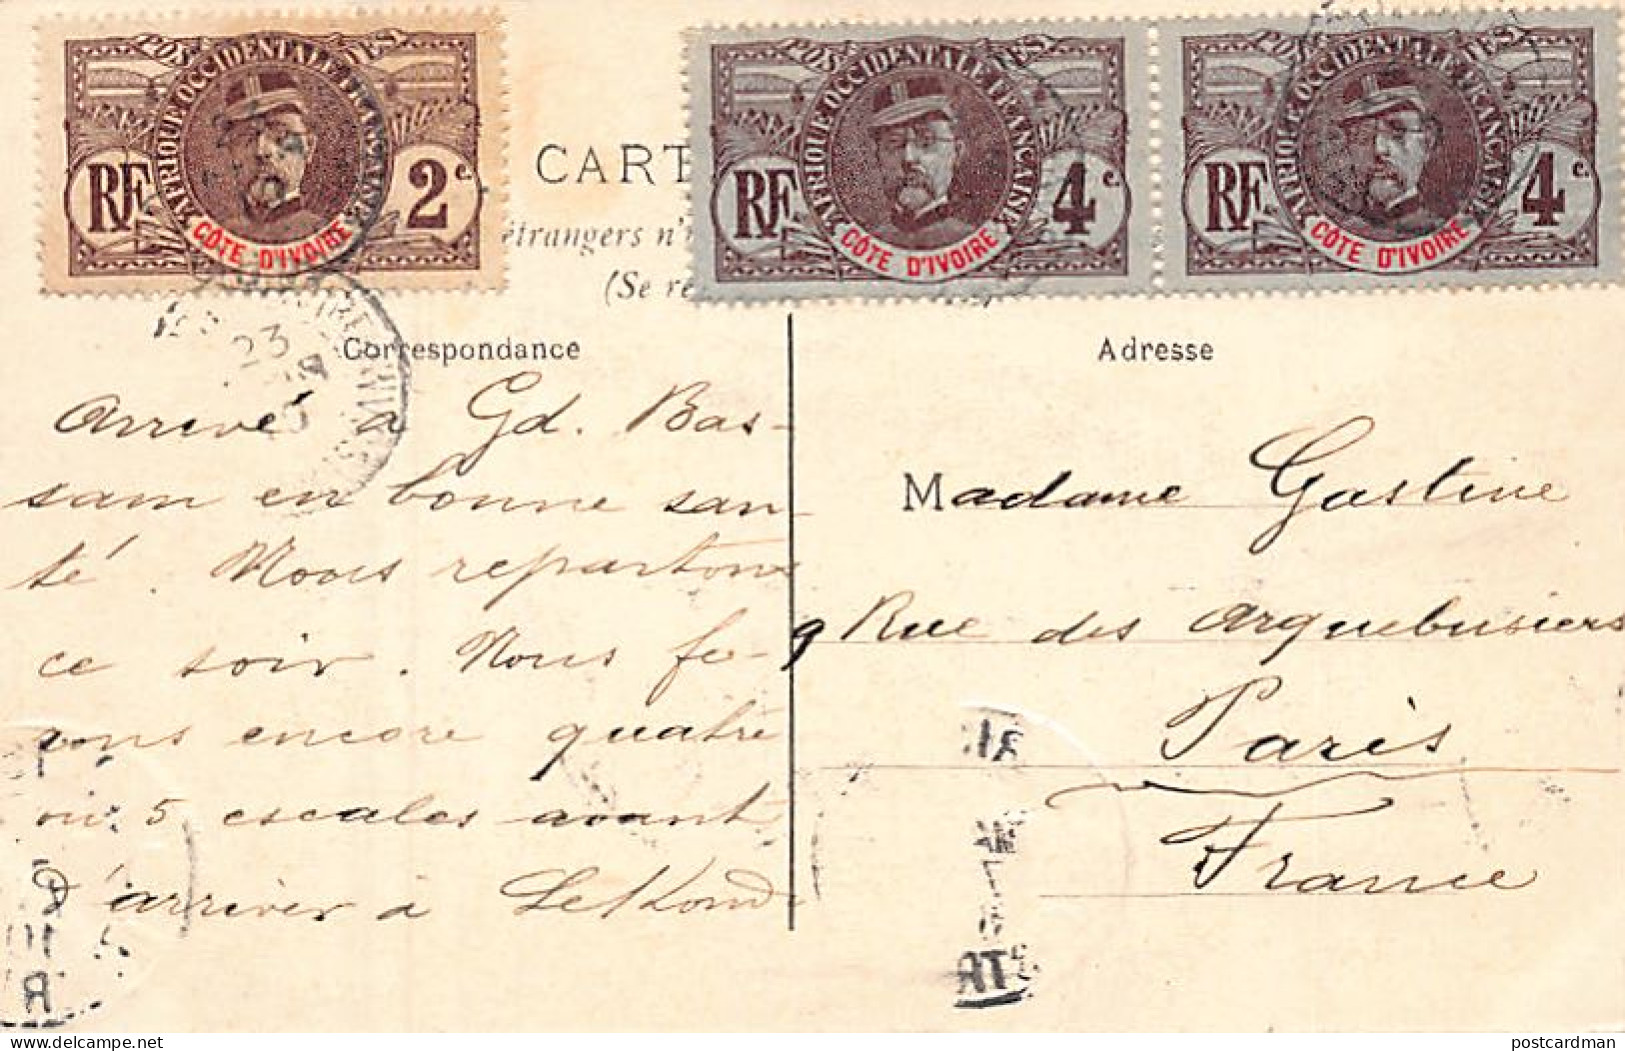 POSTES
AFRIQUE OCCIDENTALE FRANÇAISE
RF 2 c.
CÔTE D'IVOIRE
POSTES
AFRIQUE OCCIDENTALE FRANÇAISE
RF 4 c.
CÔTE D'IVOIRE
POSTES
AFRIQUE OCCIDENTALE FRANÇAISE
RF 4 c.
CÔTE D'IVOIRE
CART
étrangers n'
(Se re
Correspondance
Adresse
23
Arrivé à Gd. Bas-
sam en bonne san-
té. Nous repartons
ce soir. Nous fe-
rons encore quatre
ou 5 escales avant
d'arriver à Sekond
Madame Gastine
9 Rue des Arquebusiers
Paris
France
postcardman